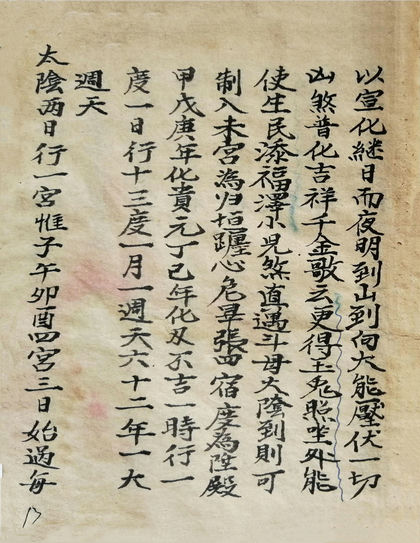 以宣化継日而夜明到山到向大能壓伏一切
凶煞普化吉祥千金歌云更得玉兎照坐外能
使生民添福澤小児煞直遇斗母大陰到則可
制入未宮為归垣躔心危畢張四宿度為陞殿
甲戊庚年化貴元丁巳年化刄不吉一時行一
度一日行十三度一月一週天六十二年一大
週天
太陰两日行一宮惟子午卯酉四宮三日始過每
13